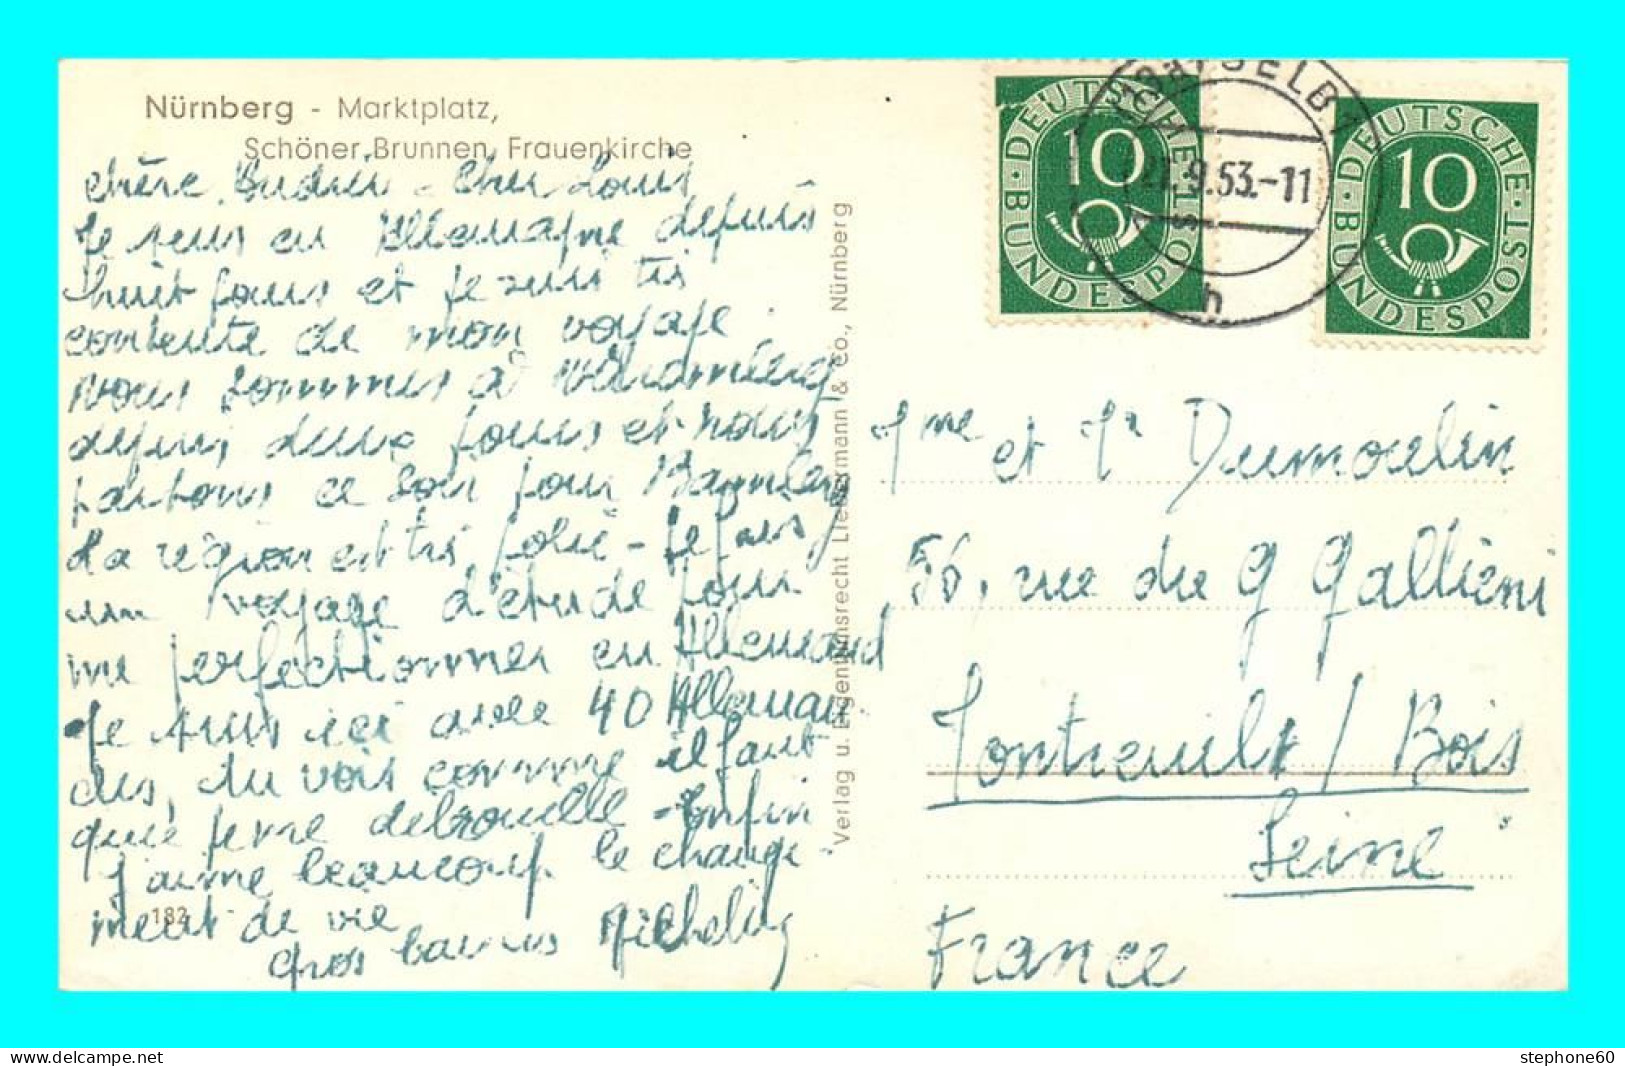 Nürnberg - Marktplatz,
Schöner Brunnen, Frauenkirche
Chère - Cher Louis
Je suis en Allemagne depuis
huit jours et je suis très
contente de mon voyage.
Nous sommes à
depuis deux jours et nous
partons ce soir pour Bamberg
La région est très jolie - Je fais
un voyage d'étude pour
me perfectionner en Allemand
Je suis ici avec 40 Alleman-
des, tu vois comme il faut
que je me débrouille - Enfin
j'aime beaucoup le change-
ment de vie
Gros baisers Micheline
182
Verlag u. Eigentumsrecht Liebermann & Co., Nürnberg
DEUTSCHE BUNDESPOST
10
DEUTSCHE BUNDESPOST
10
SELB 1
21.9.53.-11
h
Mme et Mr Dumoulin
56, rue du G Galliéni
Montreuil s/ Bois
Seine
France
stephone60